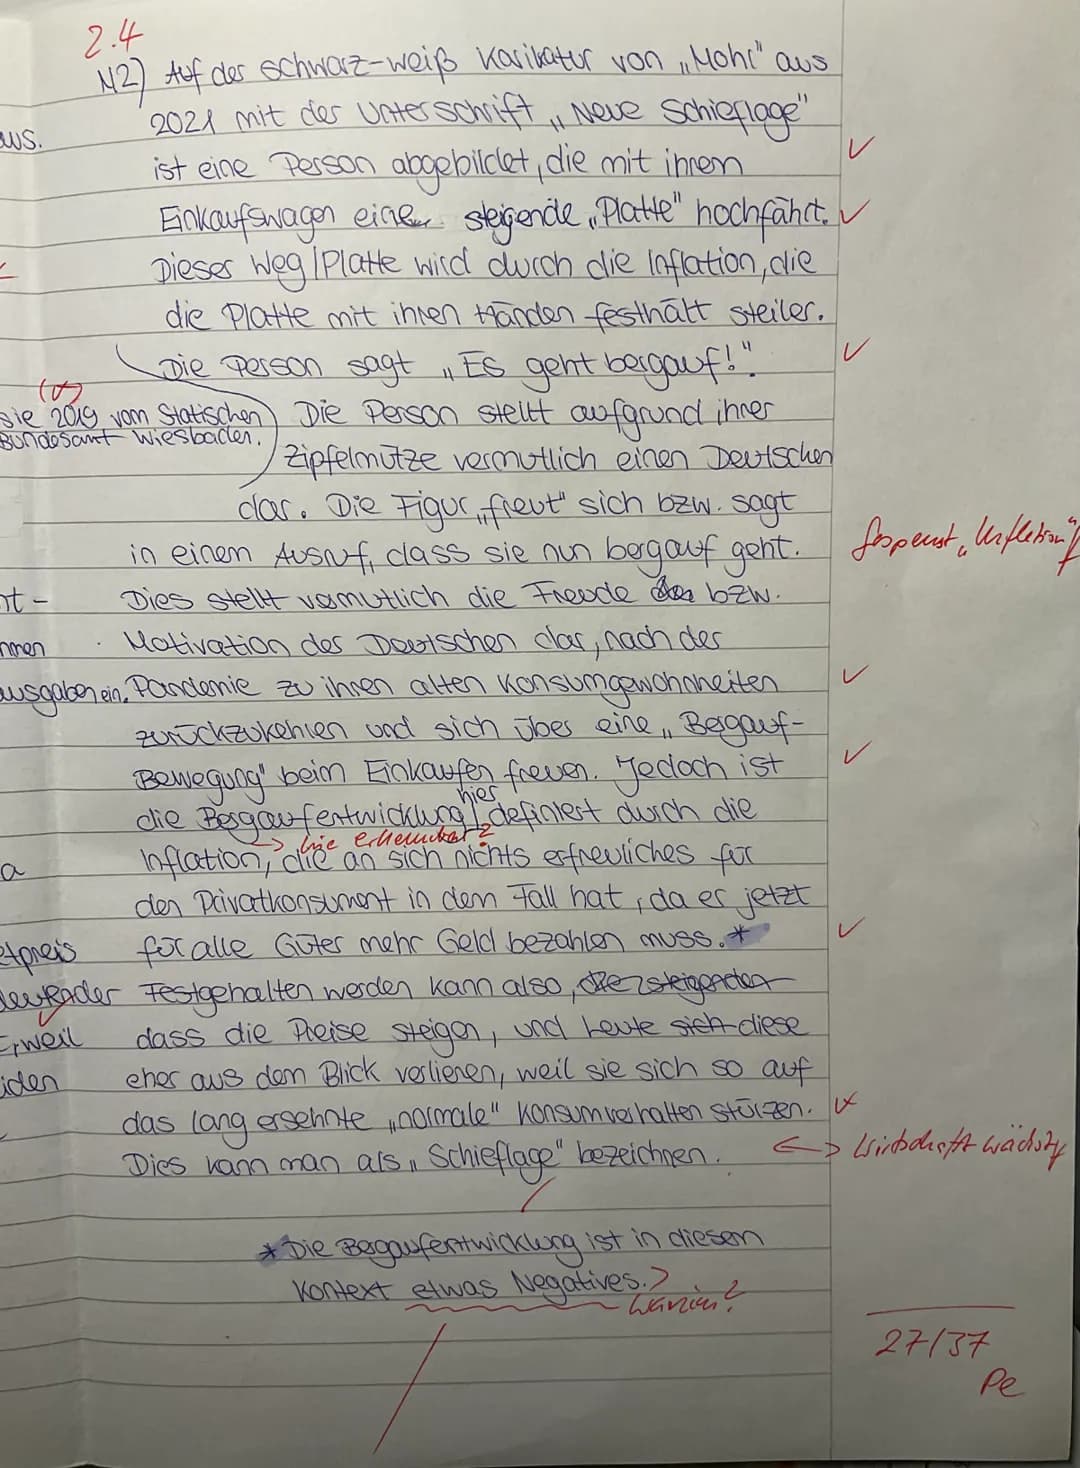 2.4
M2) Auf der schwarz-weiß Karikatur von „Mohr" aus
2021 mit der Unterschrift „Neue Schieflage"
ist eine Person abgebildet, die mit ihrem
Einkaufswagen eine steigende „Platte" hochfährt.
Dieser Weg/Platte wird durch die Inflation, die
die Platte mit ihren Händen festhält steiler.
Die Person sagt „Es geht bergauf!".
Die Person stellt aufgrund ihrer
Zipfelmütze vermutlich einen Deutschen
dar. Die Figur „freut" sich bzw. sagt
in einem Ausruf, dass sie nun bergauf geht.
Gespenst „Inflation"
Dies stellt vermutlich die Freude bzw.
Motivation des Deutschen dar, nach der
Pandemie zu ihren alten Konsumgewohnheiten
zurückzukehren und sich über eine „Bergauf-
Bewegung" beim Einkaufen freuen. Jedoch ist
die Bergaufentwicklung hier definiert durch die
-> wie erkennbar?
Inflation, die an sich nichts erfreuliches für
den Privatkonsument in dem Fall hat, da er jetzt
für alle Güter mehr Geld bezahlen muss.*
Festgehalten werden kann also, die steigenden
dass die Preise steigen, und Leute sich diese
eher aus dem Blick verlieren, weil sie sich so auf
das lang ersehnte „normale" Konsumverhalten stürzen.
Dies kann man als „Schieflage" bezeichnen.
<-> Wirtschaft wächst
*Die Bergaufentwicklung ist in diesem
Kontext etwas Negatives.
Warum?
27/37
Pe
aus.
(v)
sie 2019 vom Statischen
Bundesamt Wiesbaden.
nt-
nmen
ausgaben ein.
a
etpreis
deutender
Erweil
iden